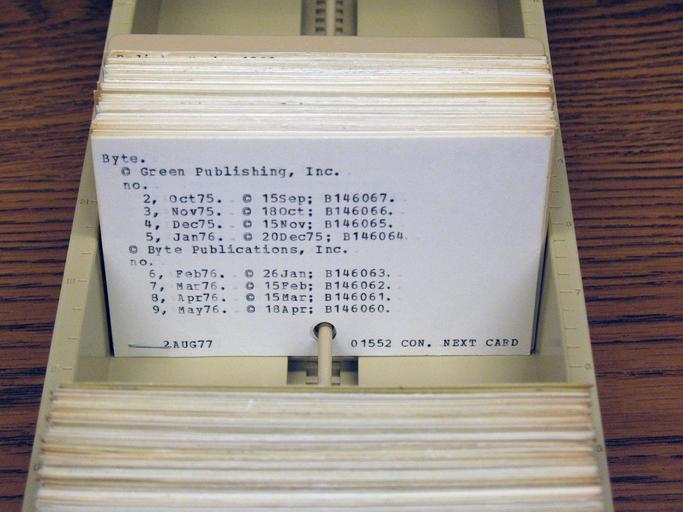 Byte.
© Green Publishing, Inc.
no.
2, Oct75. © 15Sep; B146067.
3, Nov75. © 18Oct; B146066.
4, Dec75. © 15Nov; B146065.
5, Jan76. © 20Dec75; B146064.
© Byte Publications, Inc.
no.
6, Feb76. © 26Jan; B146063.
7, Mar76. © 15Feb; B146062.
8, Apr76. © 15Mar; B146061.
9, May76. © 18Apr; B146060.
2AUG77 01552 CON. NEXT CARD